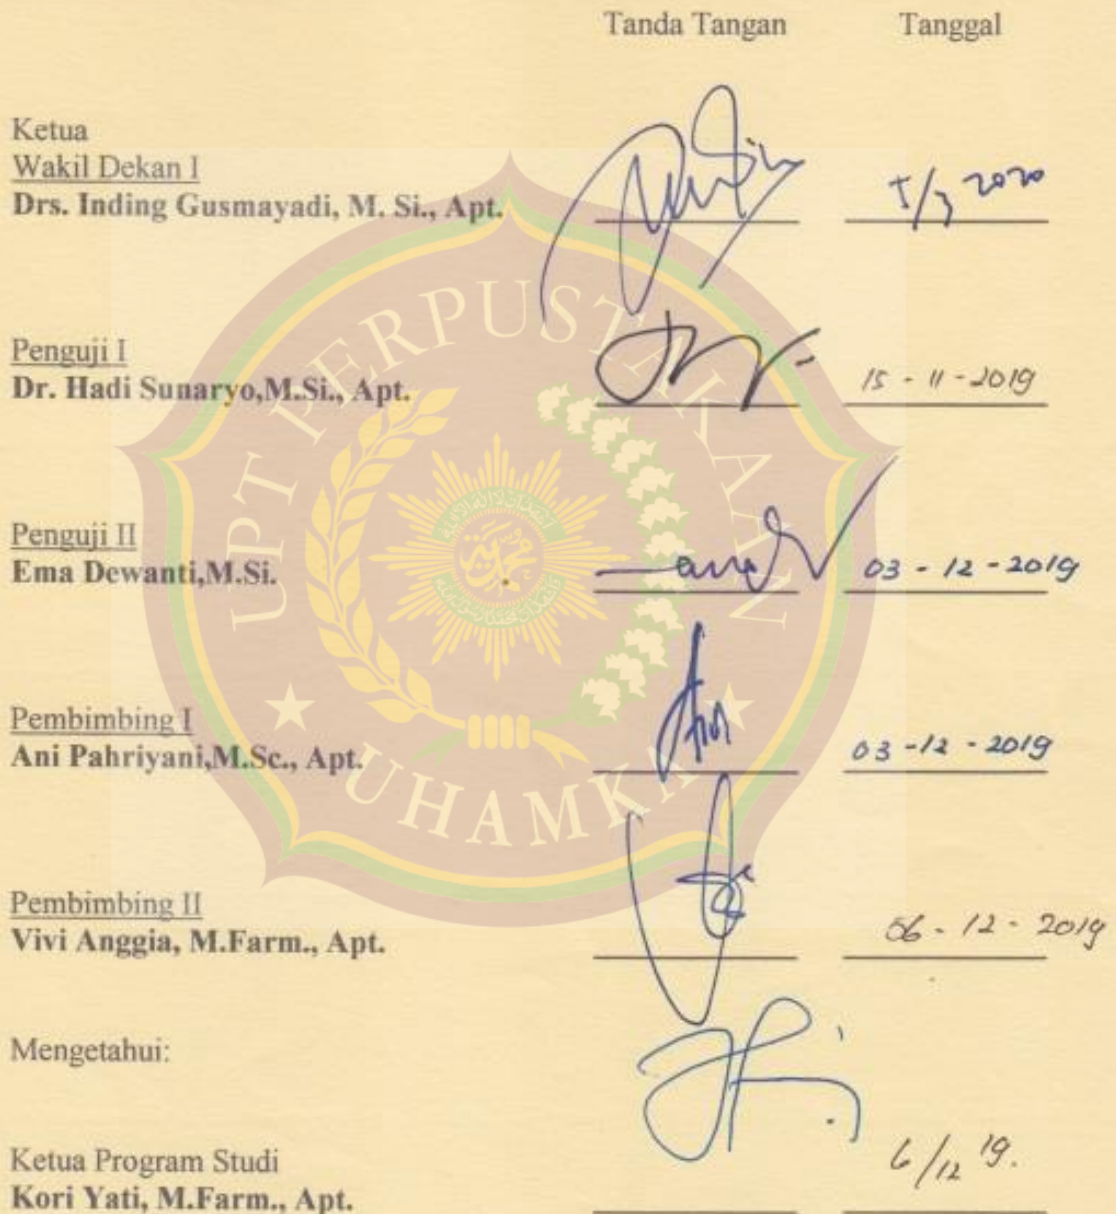 Tanda Tangan Tanggal
Ketua
Wakil Dekan I
Drs. Inding Gusmayadi, M. Si., Apt.
Penguji I
Dr. Hadi Sunaryo,M.Si., Apt. 15 - 11 - 2019
Penguji II
Ema Dewanti,M.Si. 03 - 12 - 2019
Pembimbing I
Ani Pahriyani,M.Sc., Apt. 03 - 12 - 2019
Pembimbing II
Vivi Anggia, M.Farm., Apt. 06 - 12 - 2019
Mengetahui:
Ketua Program Studi
Kori Yati, M.Farm., Apt. 6/12 19.
UPT PERPUSTAKAAN
UHAMKA